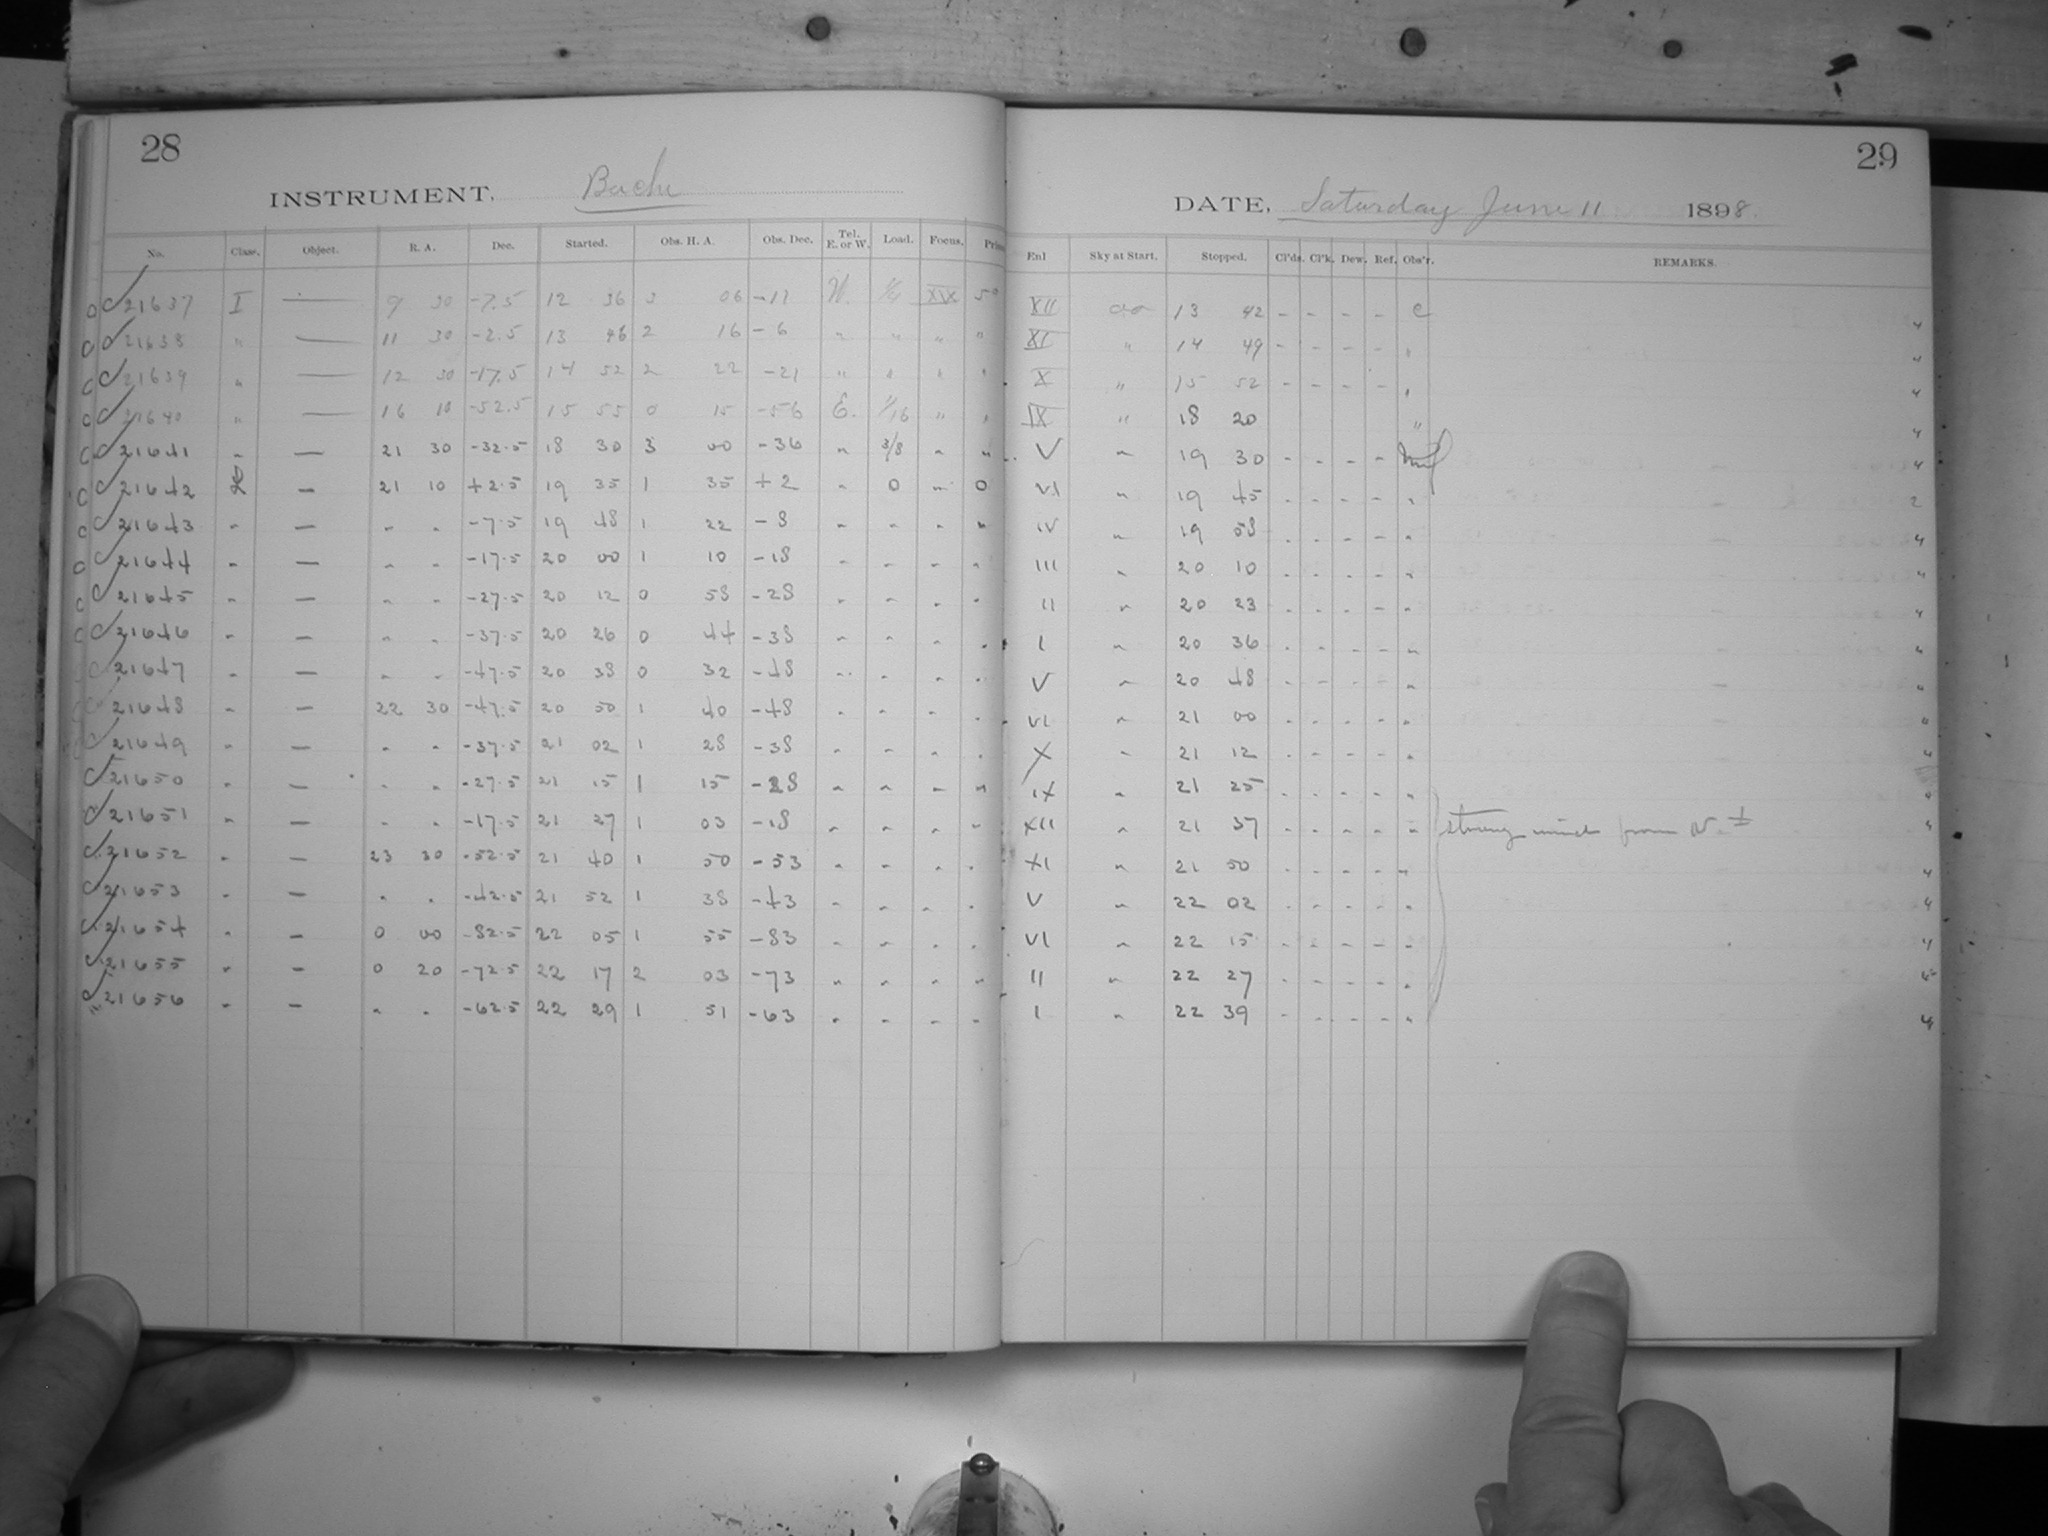 28
INSTRUMENT, Bache
No. Class. Object. R. A. Dec. Started. Obs. H. A. Obs. Dec. Tel. E. or W. Load. Focus.
C 21637 I — 9 30 -7.5 12 36 3 06 -11 W. 1/4 XIX 50
C 21638 " — 11 30 -2.5 13 46 2 16 -6 " " " "
C 21639 " — 12 30 -17.5 14 52 2 22 -21 " " " "
C 21640 " — 16 10 -52.5 15 55 0 15 -56 E. 1/16 " "
C 21641 " — 21 30 -32.5 18 30 3 00 -36 " 3/8 " "
C 21642 — 21 10 +2.5 19 35 1 35 +2 " 0 " 0
C 21643 " — " " -7.5 19 48 1 22 -8 " " " "
C 21644 " — " " -17.5 20 00 1 10 -18 " " " "
C 21645 " — " " -27.5 20 12 0 58 -28 " " " "
C 21646 " — " " -37.5 20 26 0 44 -38 " " " "
C 21647 " — " " -47.5 20 38 0 32 -48 " " " "
C 21648 " — 22 30 -47.5 20 50 1 40 -48 " " " "
C 21649 " — " " -37.5 21 02 1 28 -38 " " " "
C 21650 " — " " -27.5 21 15 1 15 -28 " " " "
C 21651 " — " " -17.5 21 27 1 03 -18 " " " "
C 21652 " — 23 30 -52.5 21 40 1 50 -53 " " " "
C 21653 " — " " -42.5 21 52 1 38 -43 " " " "
C 21654 " — 0 00 -82.5 22 05 1 55 -83 " " " "
C 21655 " — 0 20 -72.5 22 17 2 03 -73 " " " "
C 21656 " — " " -62.5 22 29 1 51 -63 " " " "
29
DATE, Saturday June 11 1898.
Enl Sky at Start. Stopped. Cl'ds. Cl'k. Dew. Ref. Obs'r. REMARKS.
XII 13 42 - - - - C
XI " 14 49 - - - - " 4
X " 15 52 - - - - " 4
IX " 18 20 " 4
V " 19 30 - - - - 4
VI " 19 45 - - - - " 2
IV " 19 58 - - - - " 4
III " 20 10 - - - - " 4
II " 20 23 - - - - " 4
I " 20 36 - - - - "
V " 20 48 - - - - "
VI " 21 00 - - - - "
X " 21 12 - - - - " 4
IX " 21 25 - - - - "
XII " 21 37 - - - - " strong wind from N. ±
XI " 21 50 - - - - " 4
V " 22 02 - - - - " 4
VI " 22 15 - - - - " 4
II " 22 27 - - - - "
I " 22 39 - - - - " 4